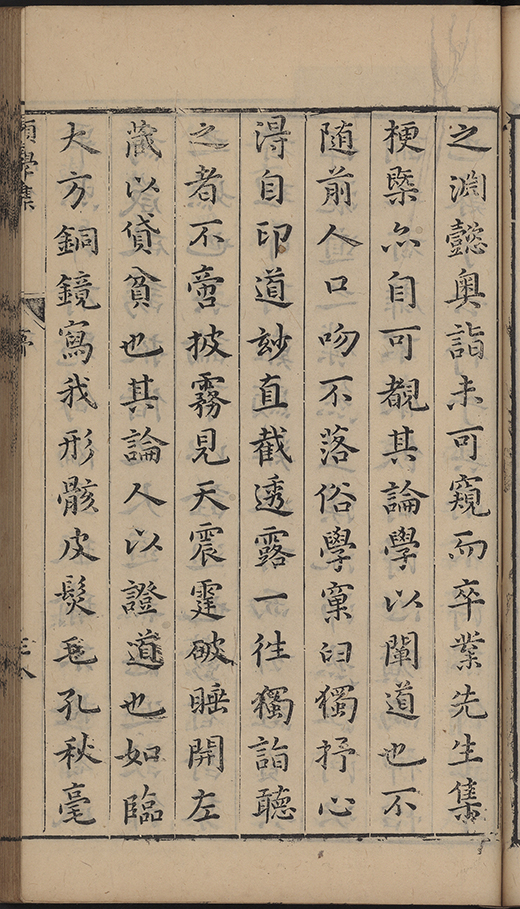 之淵懿奧詣未可窺而卒業先生集
梗槩亦自可覩其論學以闡道也不
随前人口吻不落俗學窠臼獨抒心
淂自印道玅直截透露一往獨詣聽
之者不啻披霧見天震霆破睡開左
藏以貸貧也其論人以證道也如臨
大方銅鏡寫我形骸皮髮毛孔秋毫
學集
序